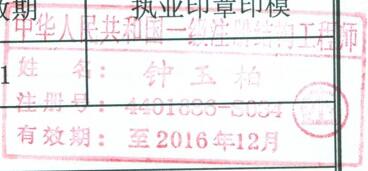 效期 执业印章印模
中华人民共和国一级注册结构工程师
1
姓 名： 钟玉柏
注册号： 4401886-S034
有效期： 至2016年12月